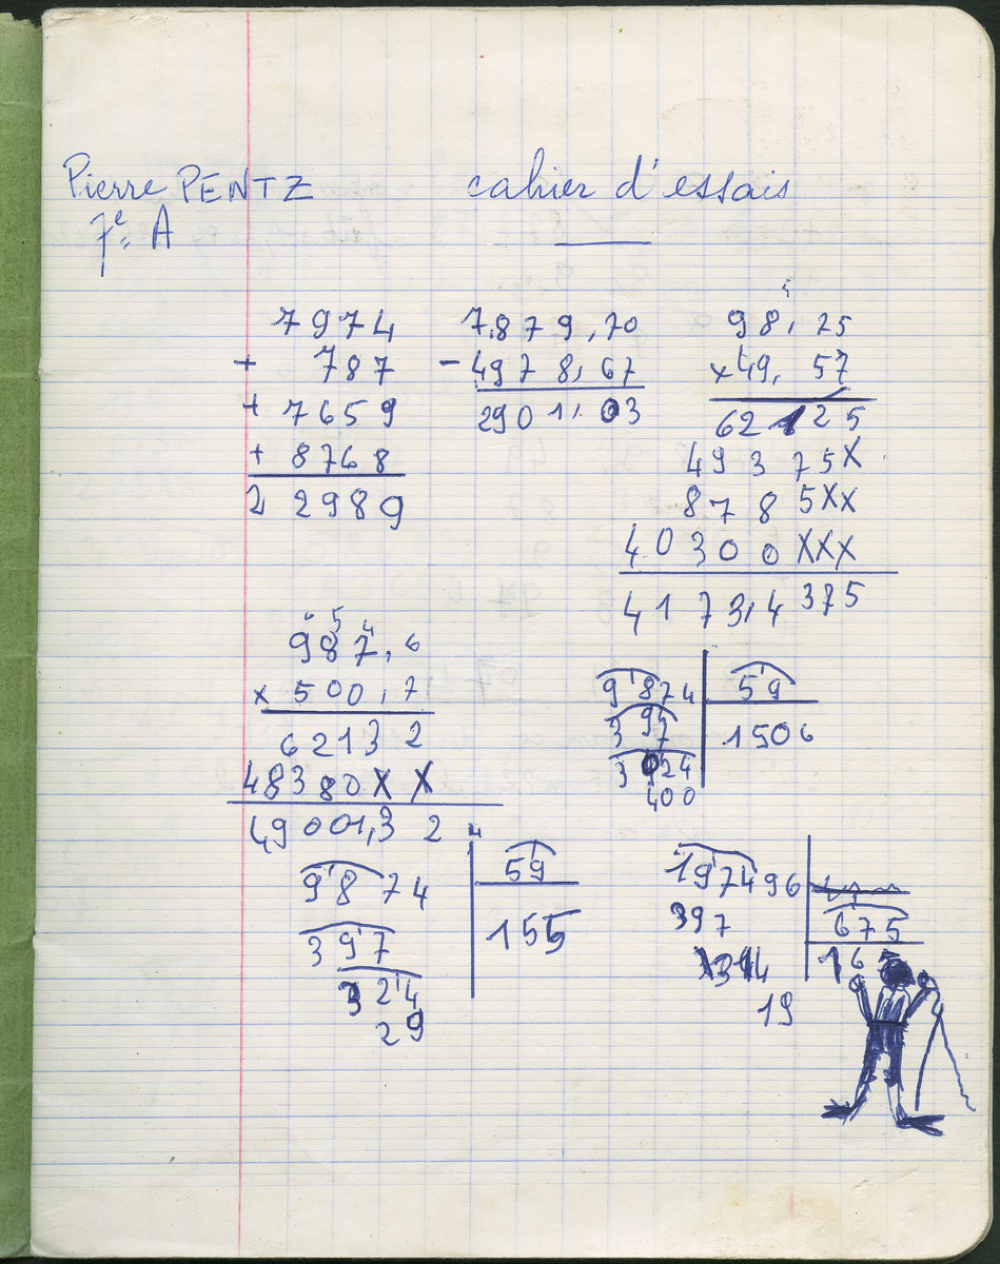 Pierre PENTZ cahier d'essais
7e A
7974
+ 787
+ 7659
+ 8768
22989
7.879,70
-4978,67
2901,03
98,25
×49,57
62125
49375X
8785XX
40300XXX
4173,4375
987,6
× 500,7
62132
48380XX
49001,32
9874 59
397 1506
3024
400
9874 59
397 155
324
29
197496
397 675
1344
19